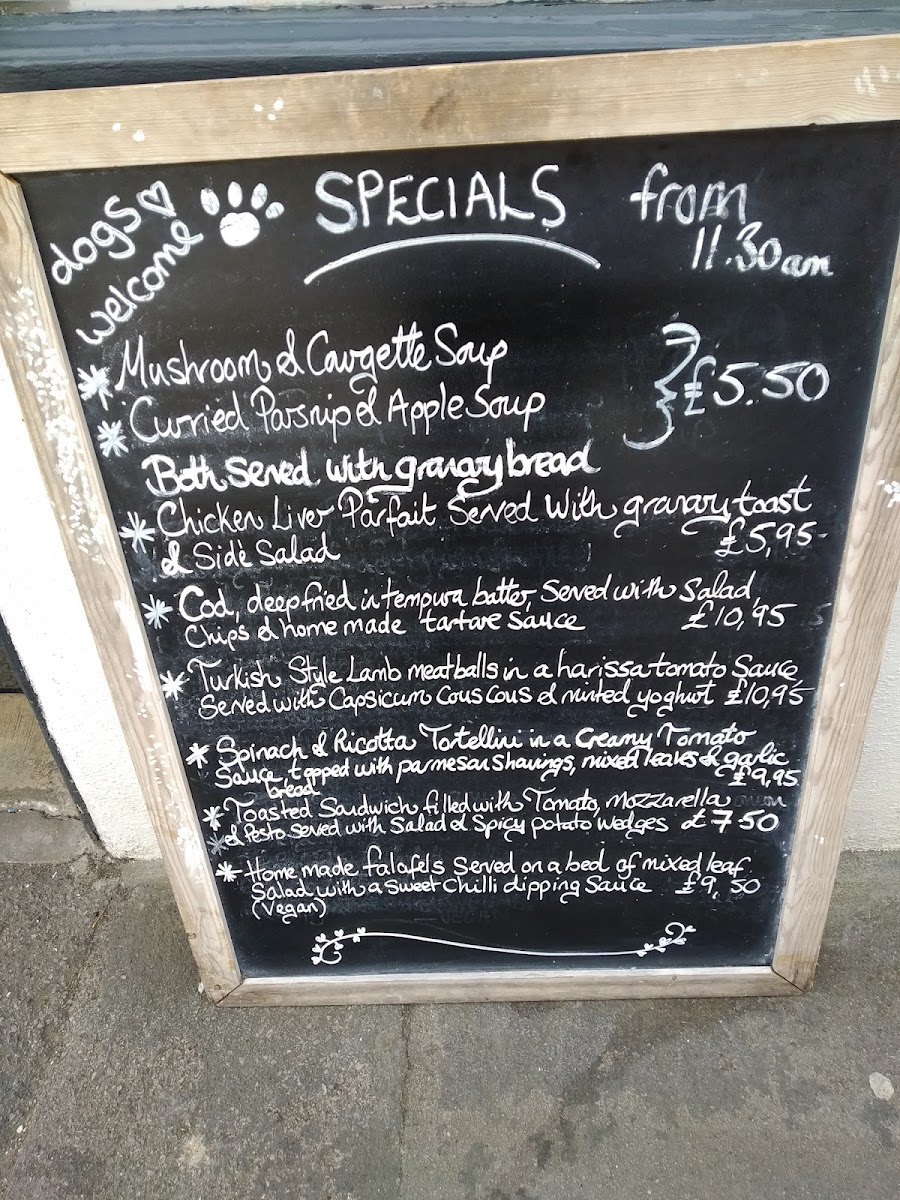 dogs
welcome
SPECIALS
from
11.30am
* Mushroom & Courgette Soup
* Curried Parsnip & Apple Soup
£5.50
Both Served with granary bread
* Chicken Liver Parfait Served With granary toast
& Side Salad £5,95
* Cod, deep fried in tempura batter, Served with Salad,
Chips & home made tartare Sauce £10,95
* Turkish Style Lamb meatballs in a harissa tomato Sauce,
Served with Capsicum Cous Cous & minted yoghurt £10,95
* Spinach & Ricotta Tortellini in a Creamy Tomato
Sauce, topped with parmesan shavings, mixed leaves & garlic
bread £9,95
* Toasted Sandwich filled with Tomato, mozzarella
* & Pesto Served with Salad & Spicy potato wedges £7 50
* Home made falafels Served on a bed of mixed leaf
Salad with a Sweet Chilli dipping Sauce £9, 50
(Vegan)